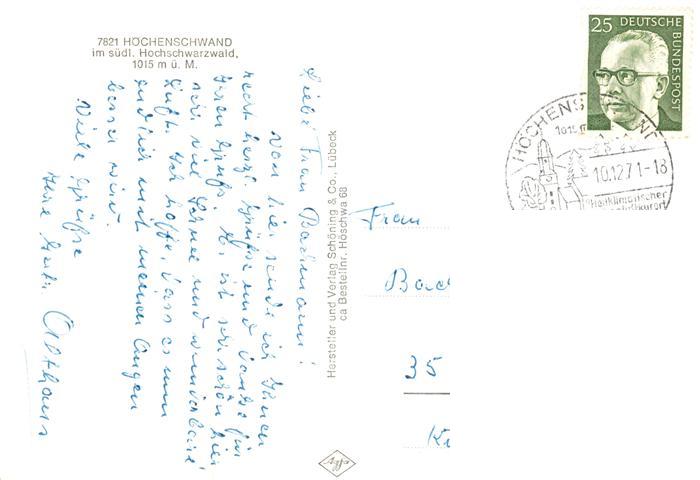 7821 HÖCHENSCHWAND
im südl. Hochschwarzwald,
1015 m ü. M.
Liebe Frau Bachmann!
Von hier sende ich Ihnen
recht herzl. Grüße und Danke für
Ihren Gruß. Es ist sehr schön hier
sehr viel Schnee und wunderbare
Luft. Ich hoffe, dass es nun
endlich mit meinen Augen
besser wird.
Viele Grüße
Ihre
Althaus
Hersteller und Verlag Schöning & Co., Lübeck
ca Bestellnr. Höschwa 68
Agfa
25 DEUTSCHE
BUNDESPOST
HÖCHENSCHWAND
1015
10.12.71-18
Heilklimatischer
Frau
Bach
35